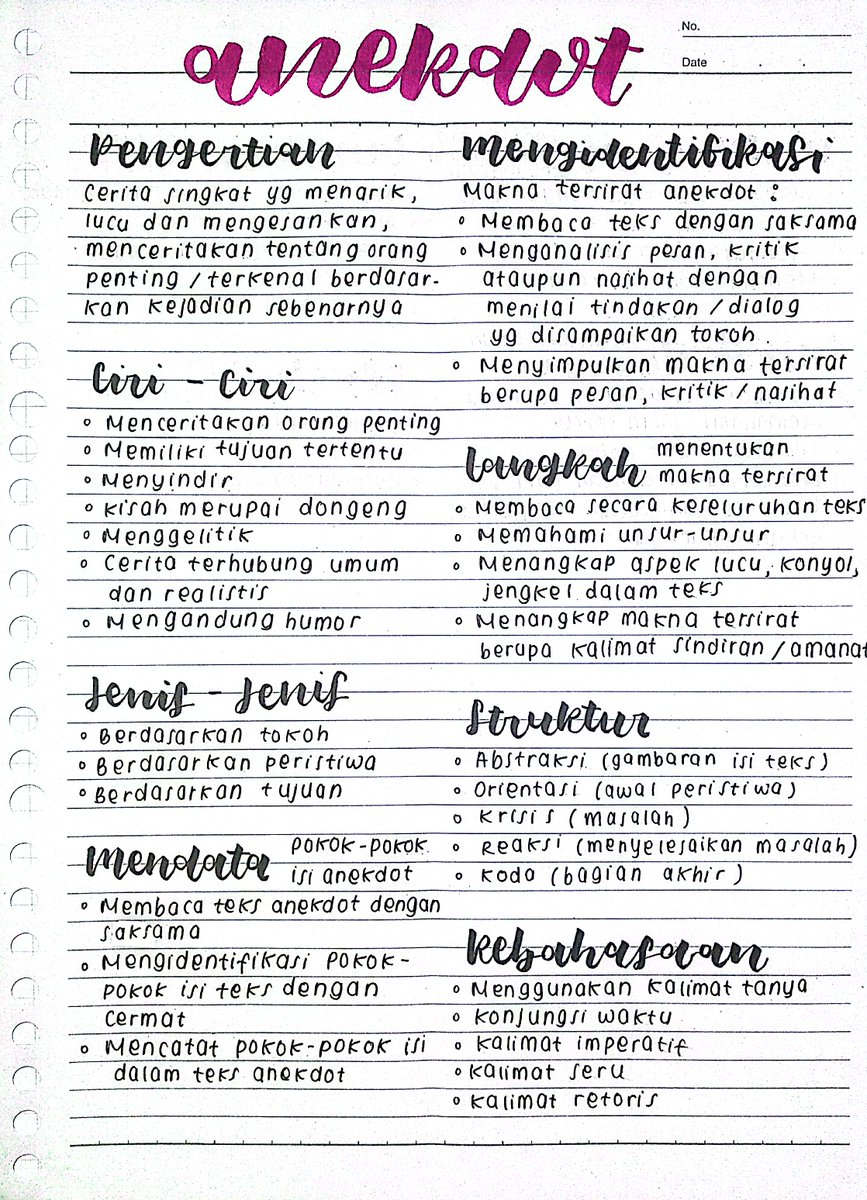 No.
Date . . .
anekdot
Pengertian
Cerita singkat yg menarik,
lucu dan mengesankan,
menceritakan tentang orang
penting / terkenal berdasar-
kan kejadian sebenarnya
Ciri - Ciri
• Menceritakan orang penting
• Memiliki tujuan tertentu
• Menyindir
• Kisah merupai dongeng
• Menggelitik
• Cerita terhubung umum
dan realistis
• Mengandung humor
Jenis - Jenis
• Berdasarkan tokoh
• Berdasarkan peristiwa
• Berdasarkan tujuan
Mendata pokok-pokok
isi anekdot
• Membaca teks anekdot dengan
saksama
• Mengidentifikasi pokok-
pokok isi teks dengan
cermat
• Mencatat pokok-pokok isi
dalam teks anekdot
Mengidentifikasi
Makna tersirat anekdot :
• Membaca teks dengan saksama
• Menganalisis pesan, kritik
ataupun nasihat dengan
menilai tindakan / dialog
yg disampaikan tokoh.
• Menyimpulkan makna tersirat
berupa pesan, kritik / nasihat
Langkah menentukan
makna tersirat
• Membaca secara keseluruhan teks
• Memahami unsur-unsur
• Menangkap aspek lucu, konyol,
jengkel dalam teks
• Menangkap makna tersirat
berupa kalimat sindiran / amanat
Struktur
• Abstraksi (gambaran isi teks)
• Orientasi (awal peristiwa)
• Krisis (masalah)
• Reaksi (menyelesaikan masalah)
• Koda (bagian akhir)
Kebahasaan
• Menggunakan kalimat tanya
• Konjungsi waktu
• Kalimat imperatif
• Kalimat seru
• Kalimat retoris